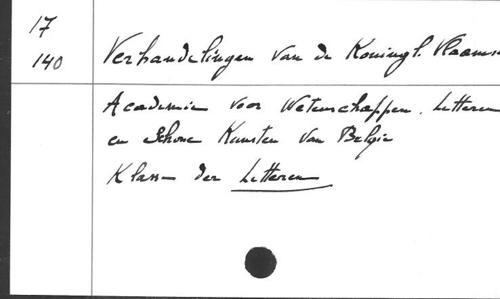 17
140
Verhandelingen van de Koningl. Vlaamse
Academie voor Wetenschappen. Letteren
en Schone Kunsten van Belgie
Klasse der Letteren